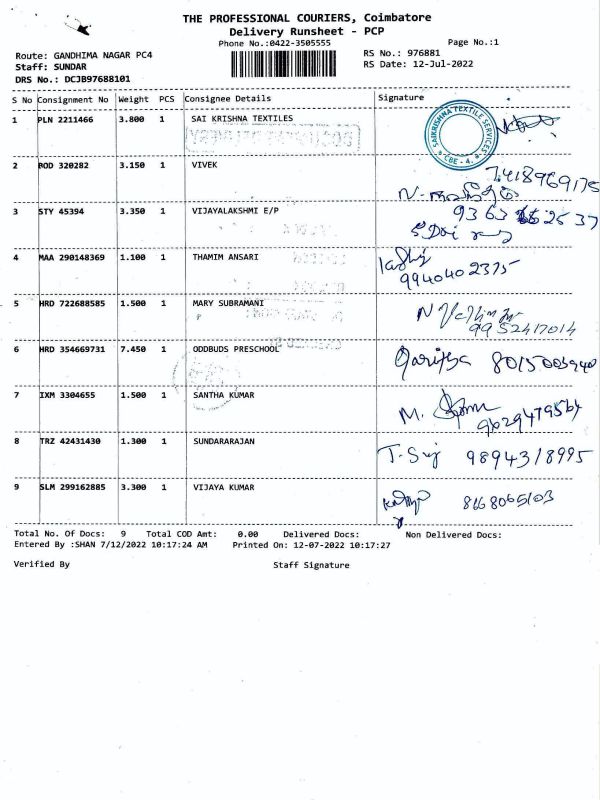 THE PROFESSIONAL COURIERS, Coimbatore
Delivery Runsheet - PCP
Phone No.:0422-3505555
Page No.:1
Route: GANDHIMA NAGAR PC4
RS No.: 976881
Staff: SUNDAR
RS Date: 12-Jul-2022
DRS No.: DCJB97688101
S No Consignment No Weight PCS Consignee Details Signature
1 PLN 2211466 3.800 1 SAI KRISHNA TEXTILES
SAIKRISHNA TEXTILE SERVICES
* CBE - 4. *
2 ROD 320282 3.150 1 VIVEK
7418969175
3 STY 45394 3.350 1 VIJAYALAKSHMI E/P
4 MAA 290148369 1.100 1 THAMIM ANSARI
9940402375
5 HRD 722688585 1.500 1 MARY SUBRAMANI
9952417014
6 HRD 354669731 7.450 1 ODDBUDS PRESCHOOL
8015003940
7 IXM 3304655 1.500 1 SANTHA KUMAR
M.
9629479564
8 TRZ 42431430 1.300 1 SUNDARARAJAN
9894318995
9 SLM 299162885 3.300 1 VIJAYA KUMAR
8168065103
Total No. Of Docs: 9 Total COD Amt: 0.00 Delivered Docs: Non Delivered Docs:
Entered By :SHAN 7/12/2022 10:17:24 AM Printed On: 12-07-2022 10:17:27
Verified By Staff Signature